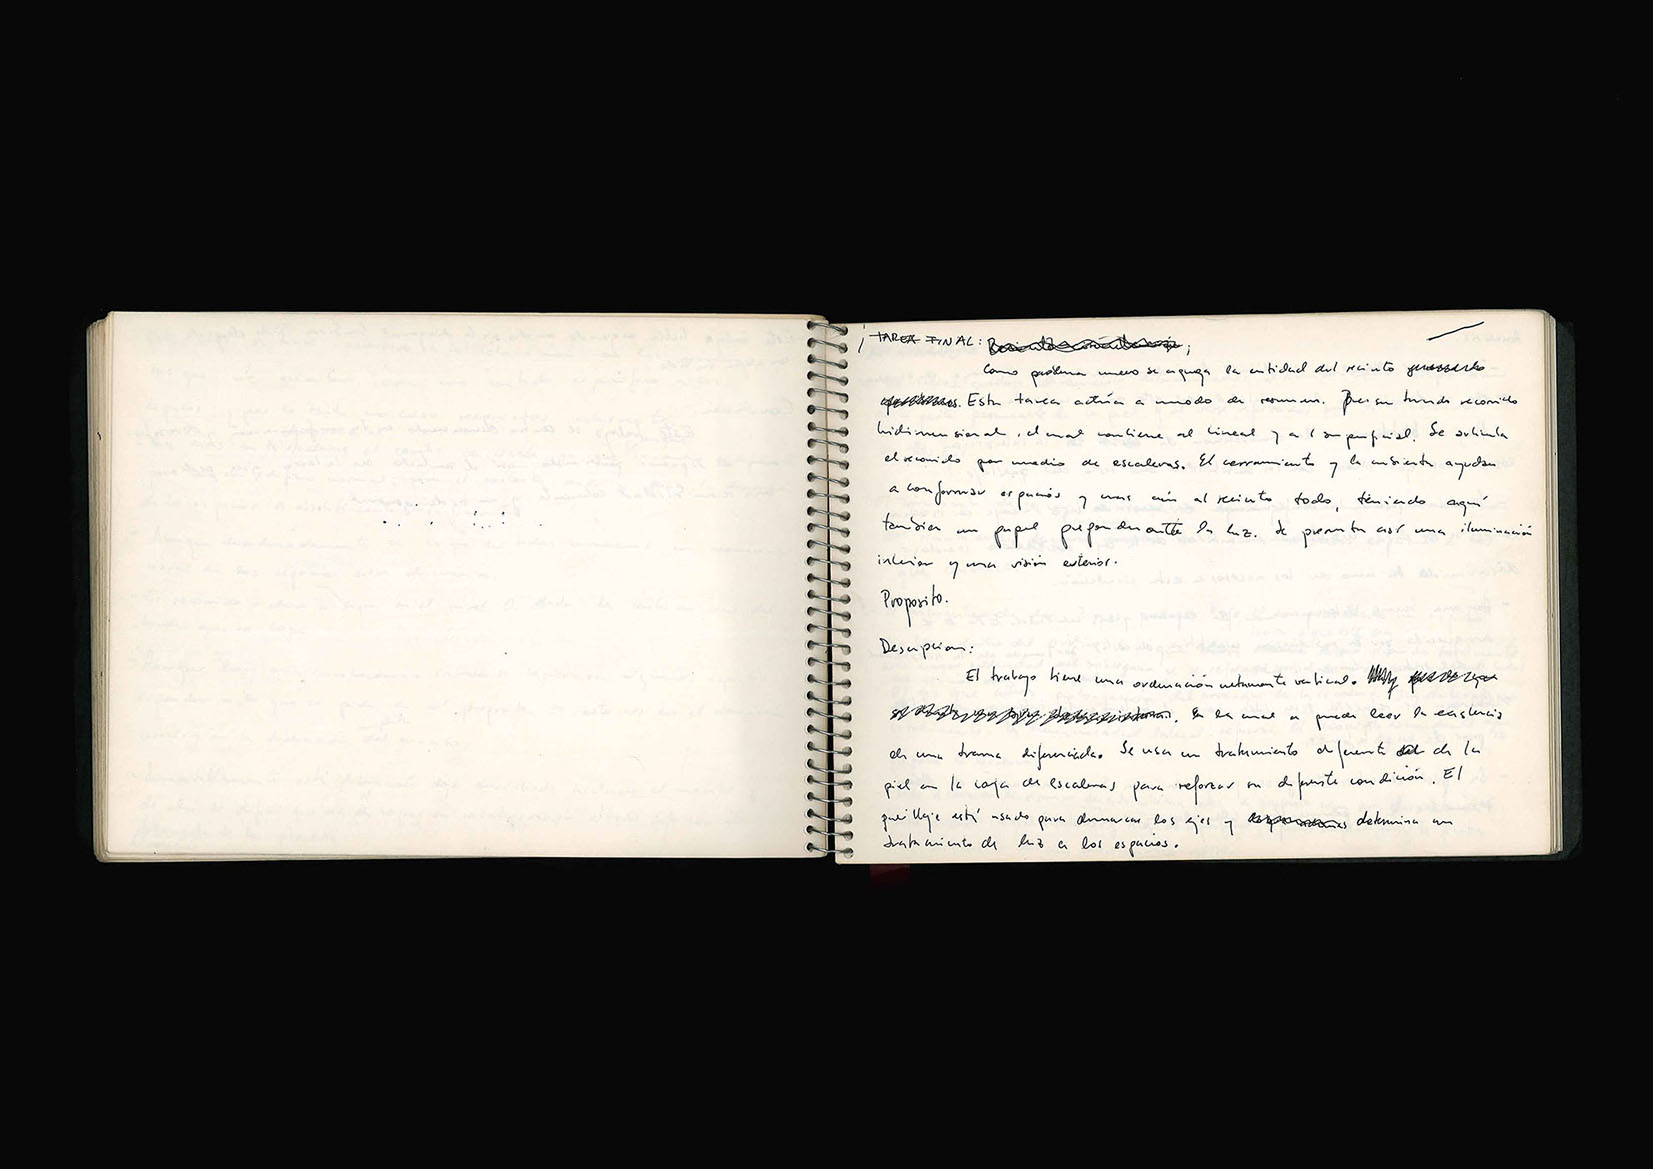 TAREA FINAL:
Como problema nuevo se agrega la entidad del recinto
Esta tarea actúa a modo de resumen. recorrido
bidimensional, el cual contiene al lineal y al superficial. Se articula
el recorrido por medio de escaleras. El cerramiento y la cubierta ayudan
a conformar espacios y mas aún al recinto todo, teniendo aquí
tambien un papel preponderante la luz. Se presenta así una iluminación
interior y una visión exterior.
Proposito.
Descripcion:
El trabajo tiene una ordenación netamente vertical.
En la cual se puede leer la existencia
de una trama diferenciada. Se usa un tratamiento diferente de la
piel en la caja de escaleras para reforzar su diferente condición. El
quillaje está usado para demarcar los ejes y determina un
tratamiento de luz a los espacios.